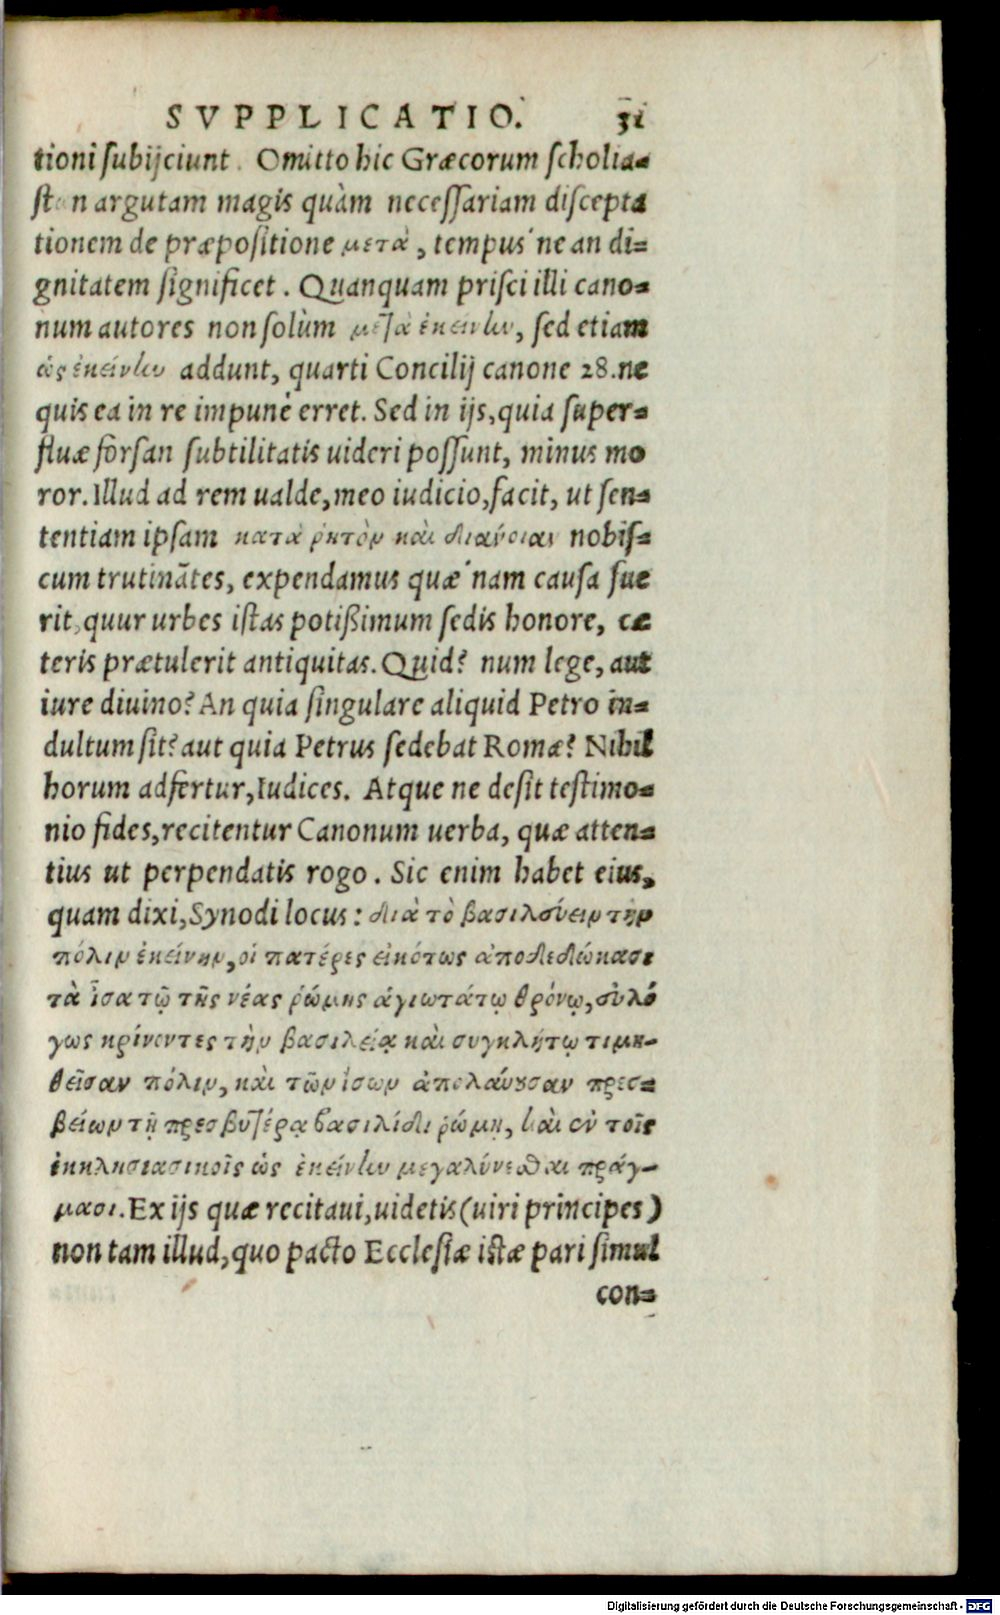 SVPPLICATIO. 31
tioni subijciunt. Omitto hic Græcorum scholia-
ston argutam magis quàm necessariam discepta
tionem de præpositione μετὰ, tempus'ne an di-
gnitatem significet. Quanquam prisci illi cano-
num autores non solùm μετὰ ἐκείνην, sed etiam
ὡς ἐκείνην addunt, quarti Concilij canone 28. ne
quis ea in re impunè erret. Sed in ijs, quia super-
fluæ forsan subtilitatis uideri possunt, minus mo
ror. Illud ad rem ualde, meo iudicio, facit, ut sen-
tentiam ipsam κατὰ ῥητὸν καὶ διάνοιαν nobis-
cum trutinātes, expendamus quæ'nam causa fue
rit, quur urbes istas potißimum sedis honore, cæ
teris prætulerit antiquitas. Quid? num lege, aut
iure diuino? An quia singulare aliquid Petro in-
dultum sit? aut quia Petrus sedebat Romæ? Nihil
horum adfertur, Iudices. Atque ne desit testimo-
nio fides, recitentur Canonum uerba, quæ atten-
tius ut perpendatis rogo. Sic enim habet eius,
quam dixi, Synodi locus: διὰ τὸ βασιλεύειν τὴν
πόλιν ἐκείνην, οἱ πατέρες εἰκότως ἀποδεδώκασι
τὰ ἶσα τῷ τῆς νέας ῥώμης ἁγιωτάτῳ θρόνῳ, εὐλό
γως κρίνοντες τὴν βασιλείᾳ καὶ συγκλήτῳ τιμη-
θεῖσαν πόλιν, καὶ τῶν ἴσων ἀπολαύουσαν πρεσ-
βείων τῇ πρεσβυτέρᾳ βασιλίδι ῥώμῃ, καὶ ἐν τοῖς
ἐκκλησιασικοῖς ὡς ἐκείνην μεγαλύνεσθαι πράγ-
μασι. Ex ijs quæ recitaui, uidetis (uiri principes)
non tam illud, quo pacto Ecclesiæ istæ pari simul
con-
Digitalisierung gefördert durch die Deutsche Forschungsgemeinschaft - DFG